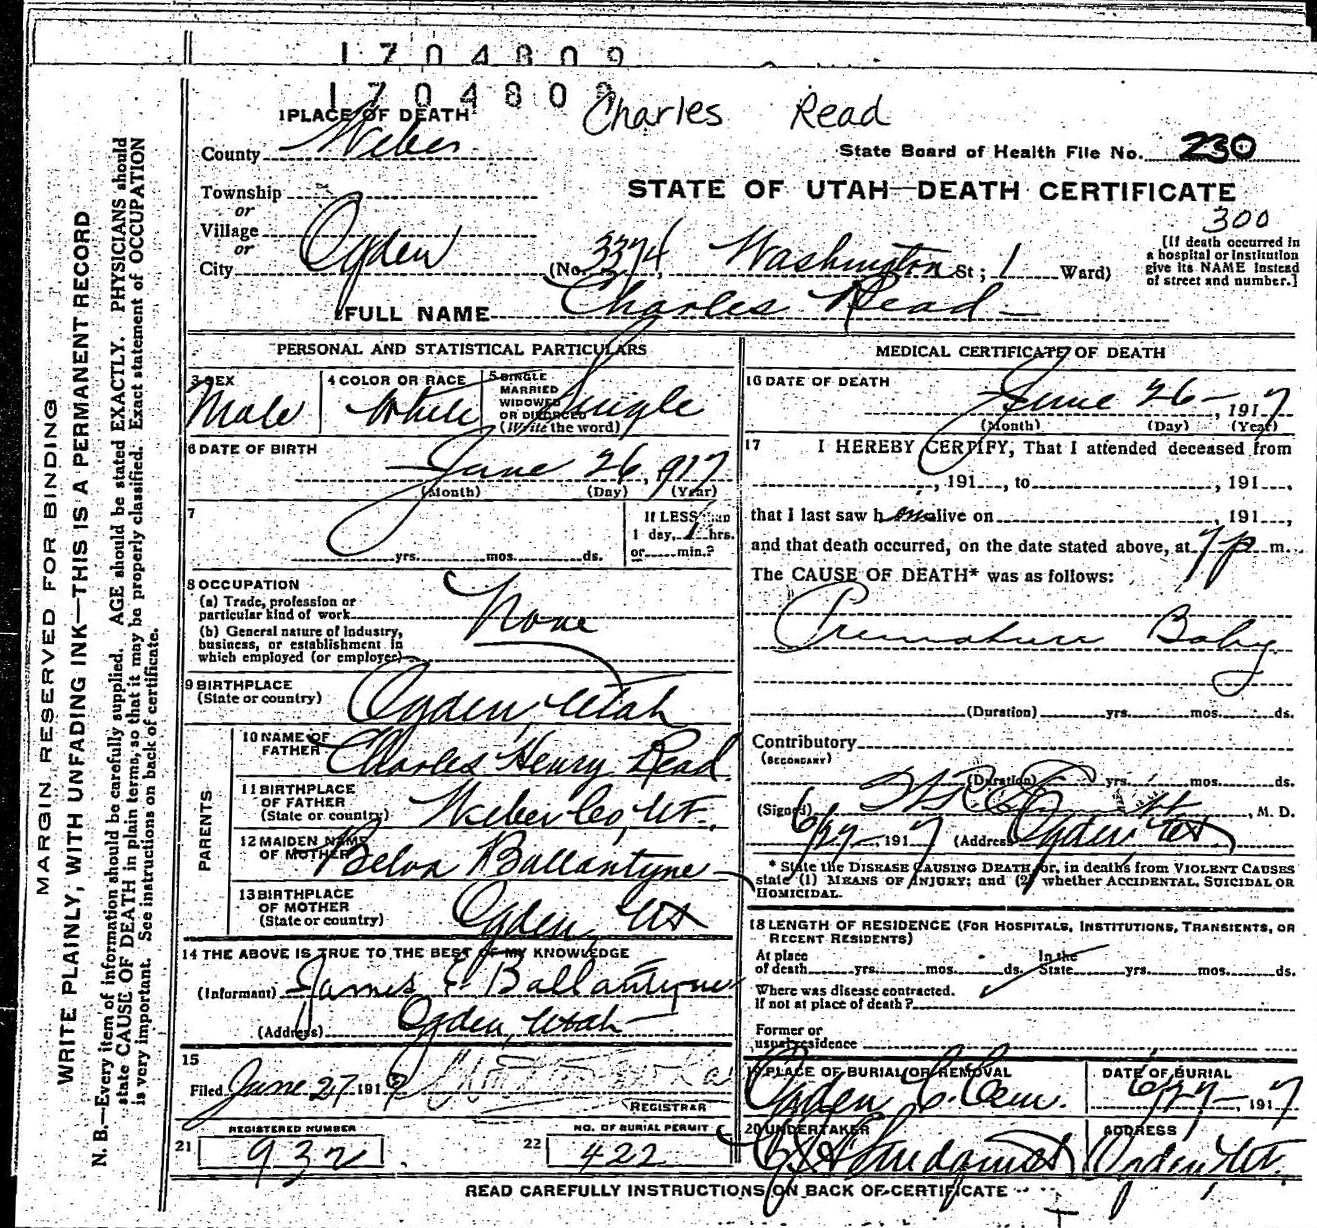 1704809
1704809
Charles Read
1 PLACE OF DEATH
County Weber
State Board of Health File No. 230
Township
or
Village
or
City Ogden
STATE OF UTAH—DEATH CERTIFICATE
300
[If death occurred in
a hospital or institution
give its NAME instead
of street and number.]
(No. 3374, Washington St; 1 Ward)
FULL NAME Charles Read
PERSONAL AND STATISTICAL PARTICULARS
3 SEX
Male
4 COLOR OR RACE
White
5 SINGLE
MARRIED
WIDOWED
OR DIVORCED
(Write the word)
Single
6 DATE OF BIRTH
June 26, 1917
(Month) (Day) (Year)
7
yrs. mos. ds.
If LESS than
1 day, 1 hrs.
or min.?
8 OCCUPATION
(a) Trade, profession or
particular kind of work
(b) General nature of industry,
business, or establishment in
which employed (or employer)
None
9 BIRTHPLACE
(State or country)
Ogden, Utah
PARENTS
10 NAME OF
FATHER
Charles Henry Read
11 BIRTHPLACE
OF FATHER
(State or country)
Weber Co, Ut.
12 MAIDEN NAME
OF MOTHER
Belva Ballantyne
13 BIRTHPLACE
OF MOTHER
(State or country)
Ogden, Ut
14 THE ABOVE IS TRUE TO THE BEST OF MY KNOWLEDGE
(Informant) James E Ballantyne
(Address) Ogden, Utah
15
Filed June 27 1917
REGISTRAR
REGISTERED NUMBER
21 932
NO. OF BURIAL PERMIT
22 422
MEDICAL CERTIFICATE OF DEATH
16 DATE OF DEATH
June 26, 1917
(Month) (Day) (Year)
17 I HEREBY CERTIFY, That I attended deceased from
, 191 , to , 191 ,
that I last saw h alive on , 191 ,
and that death occurred, on the date stated above, at 7 p m.
The CAUSE OF DEATH* was as follows:
Premature Baby
(Duration) yrs. mos. ds.
Contributory
(SECONDARY)
(Duration) yrs. mos. ds.
(Signed) , M. D.
6/27, 1917 (Address) Ogden, Ut
* State the DISEASE CAUSING DEATH or, in deaths from VIOLENT CAUSES
state (1) MEANS OF INJURY; and (2) whether ACCIDENTAL, SUICIDAL OR
HOMICIDAL.
18 LENGTH OF RESIDENCE (FOR HOSPITALS, INSTITUTIONS, TRANSIENTS, OR
RECENT RESIDENTS)
At place
of death yrs. mos. ds.
In the
State yrs. mos. ds.
Where was disease contracted.
if not at place of death?
Former or
usual residence
19 PLACE OF BURIAL OR REMOVAL
Ogden C. Cem.
DATE OF BURIAL
6/27, 1917
20 UNDERTAKER
ADDRESS
Ogden, Ut.
READ CAREFULLY INSTRUCTIONS ON BACK OF CERTIFICATE
MARGIN RESERVED FOR BINDING
WRITE PLAINLY, WITH UNFADING INK—THIS IS A PERMANENT RECORD
N. B.—Every item of information should be carefully supplied. AGE should be stated EXACTLY. PHYSICIANS should
state CAUSE OF DEATH in plain terms, so that it may be properly classified. Exact statement of OCCUPATION
is very important. See instructions on back of certificate.